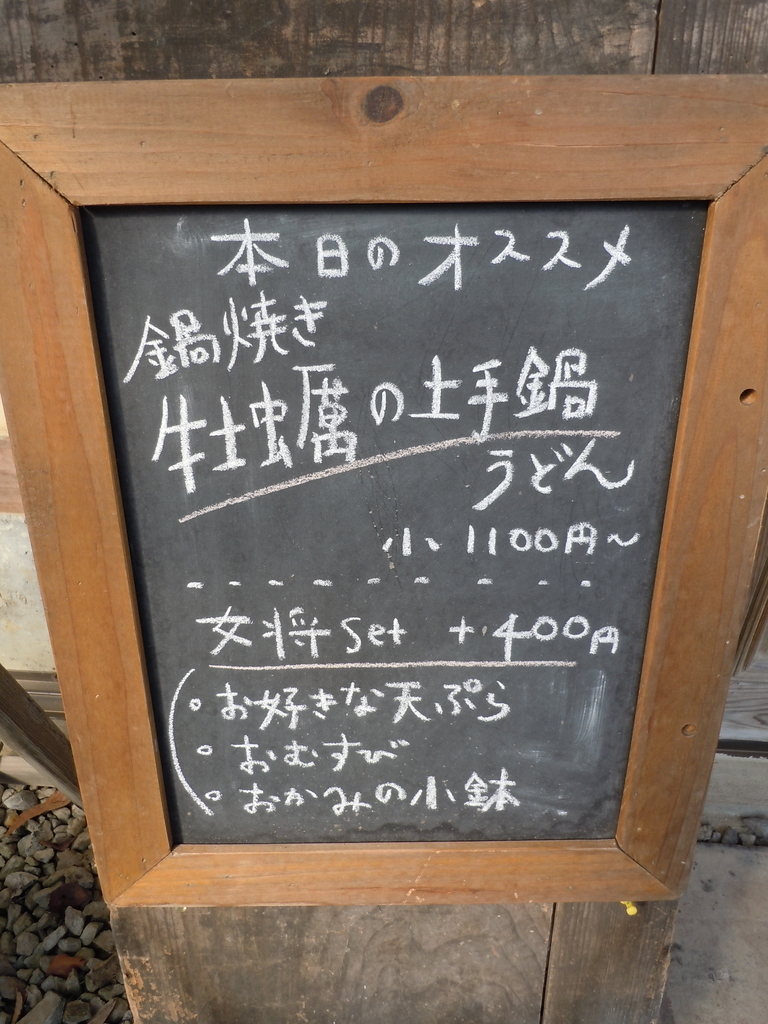 本日のオススメ
鍋焼き
牡蠣の土手鍋
うどん
小 1100円~
女将set +400円
・お好きな天ぷら
・おむすび
・おかみの小鉢